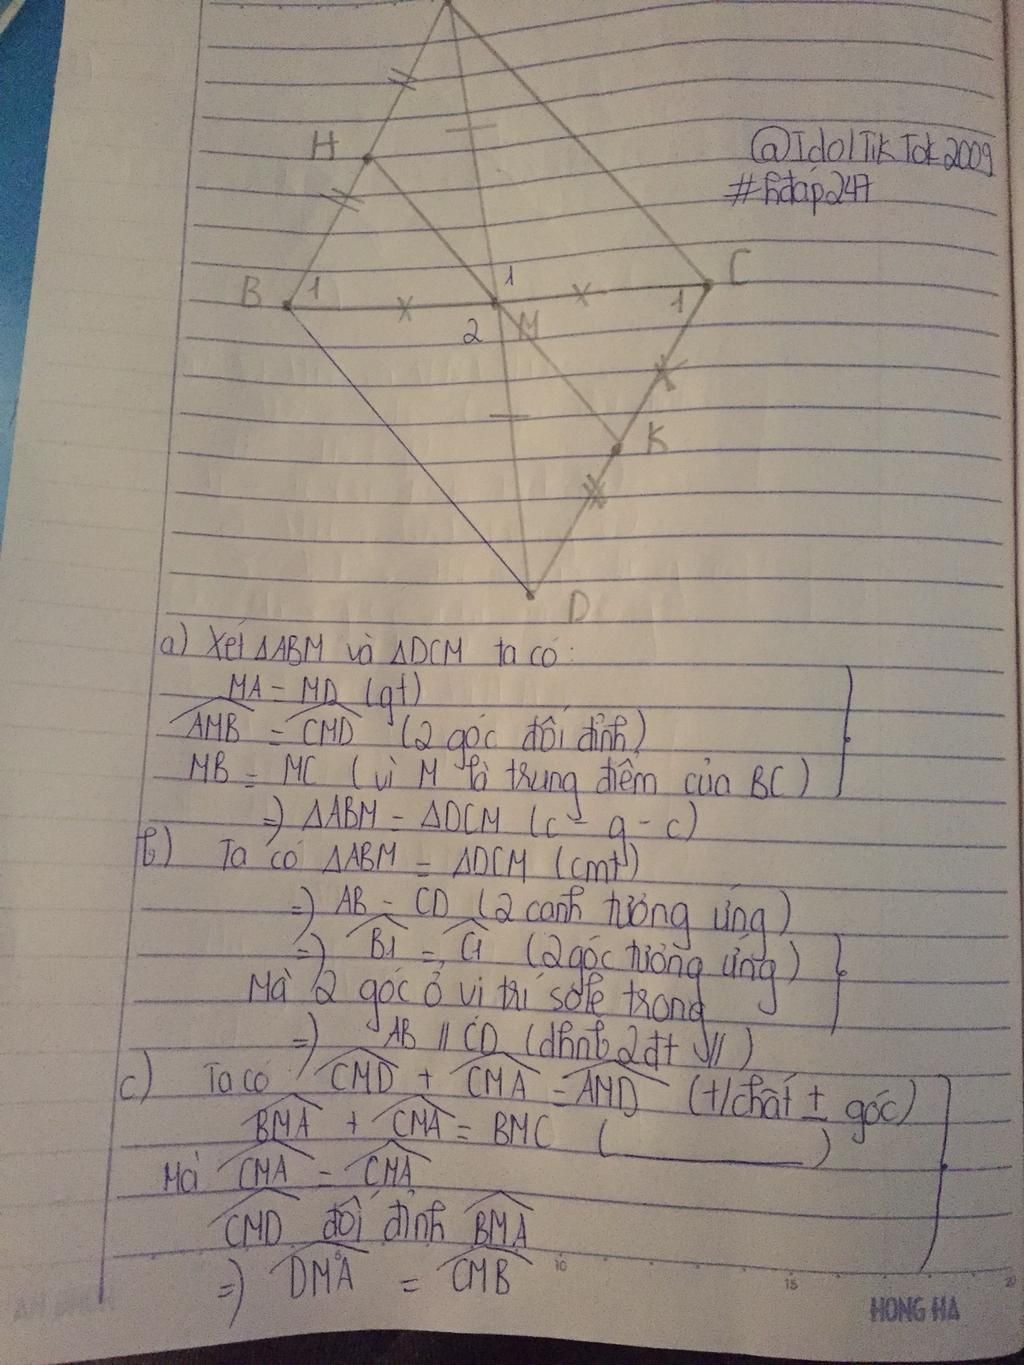 H
@IdolTikTok2009
#hđáp247
B 1
1
C
1
2 M
K
D
a) Xét ΔABM và ΔDCM ta có:
MA = MD (gt)
AMB = CMD (2 góc đối đỉnh)
MB = MC (vì M là trung điểm của BC)
=) ΔABM = ΔDCM (c-g-c)
b) Ta có ΔABM = ΔDCM (cmt)
=) AB = CD (2 cạnh tương ứng)
=) B1 = C1 (2 góc tương ứng)
Mà 2 góc ở vị trí sole trong
=) AB // CD (dhnb 2đt //)
c) Ta có CMD + CMA = AMD (t/chất ± góc)
BMA + CMA = BMC ( )
Mà CMA = CMA
CMD đối đỉnh BMA
=) DMA = CMB
10
15
20
HONG HA